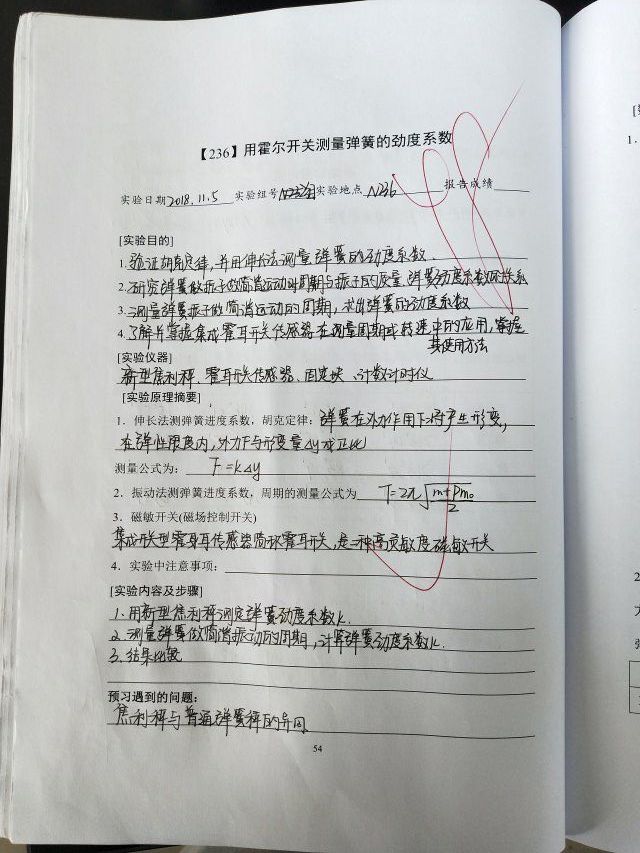 【236】用霍尔开关测量弹簧的劲度系数
实验日期2018.11.5 实验组号 实验地点N236 报告成绩
[实验目的]
1.验证胡克定律,并用伸长法测量弹簧的劲度系数.
2.研究弹簧做振子做简谐运动时周期与振子的质量、弹簧劲度系数的关系
3.测量弹簧振子做简谐运动的周期,求出弹簧的劲度系数
4.了解并掌握集成霍耳开关传感器在测量周期或转速中的应用,掌握
其使用方法
[实验仪器]
新型焦利秤、霍耳开关传感器、固定块、计数计时仪
[实验原理摘要]
1. 伸长法测弹簧进度系数,胡克定律:弹簧在外力作用下将产生形变,
在弹性限度内,外力F与形变量Δy成正比
测量公式为: F=kΔy
2. 振动法测弹簧进度系数,周期的测量公式为 T=2π√(m+Pm₀/2)
3. 磁敏开关(磁场控制开关)
集成开关型霍耳传感器简称霍耳开关,是一种高灵敏度磁敏开关
4. 实验中注意事项:
[实验内容及步骤]
1.用新型焦利秤测定弹簧劲度系数k.
2.测量弹簧做简谐振动的周期,计算弹簧劲度系数k.
3.结果比较
预习遇到的问题:
焦利秤与普通弹簧秤的异同
54